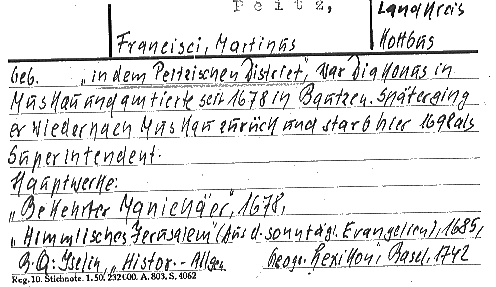 Peitz, Landkreis
Francisci, Martinus Kottbus
Geb. „in dem Peitzischen District", war Diakonus in
Muskau und amtierte seit 1678 in Bautzen. Später ging
er wieder nach Muskau zurück und starb hier 1698 als
Superintendent.
Hauptwerke:
„Bekehrter Manichäer", 1678,
„Himmlisches Jerusalem" (Aus d. sonntägl. Evangelien), 1685,
Iselin, „Histor.- Allgem Geogr. Lexikon, Basel, 1742
Reg. 10. Stichnote. 1. 50. 232100. A. 803. S. 4062